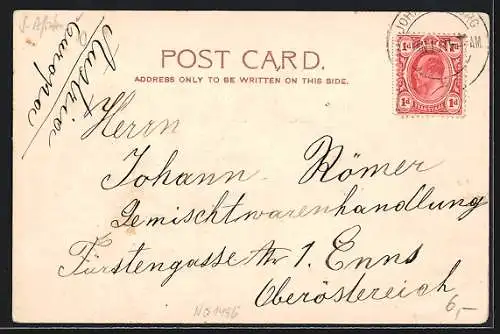 S. Afrika
Austria
Europa
POST CARD.
ADDRESS ONLY TO BE WRITTEN ON THIS SIDE.
JOHA
RG
AM
1d 1d
1d 1d
Herrn
Johann Römer
Gemischtwarenhandlung
Fürstengasse Nr 1. Enns
Oberöstereich
NO1496
6,-